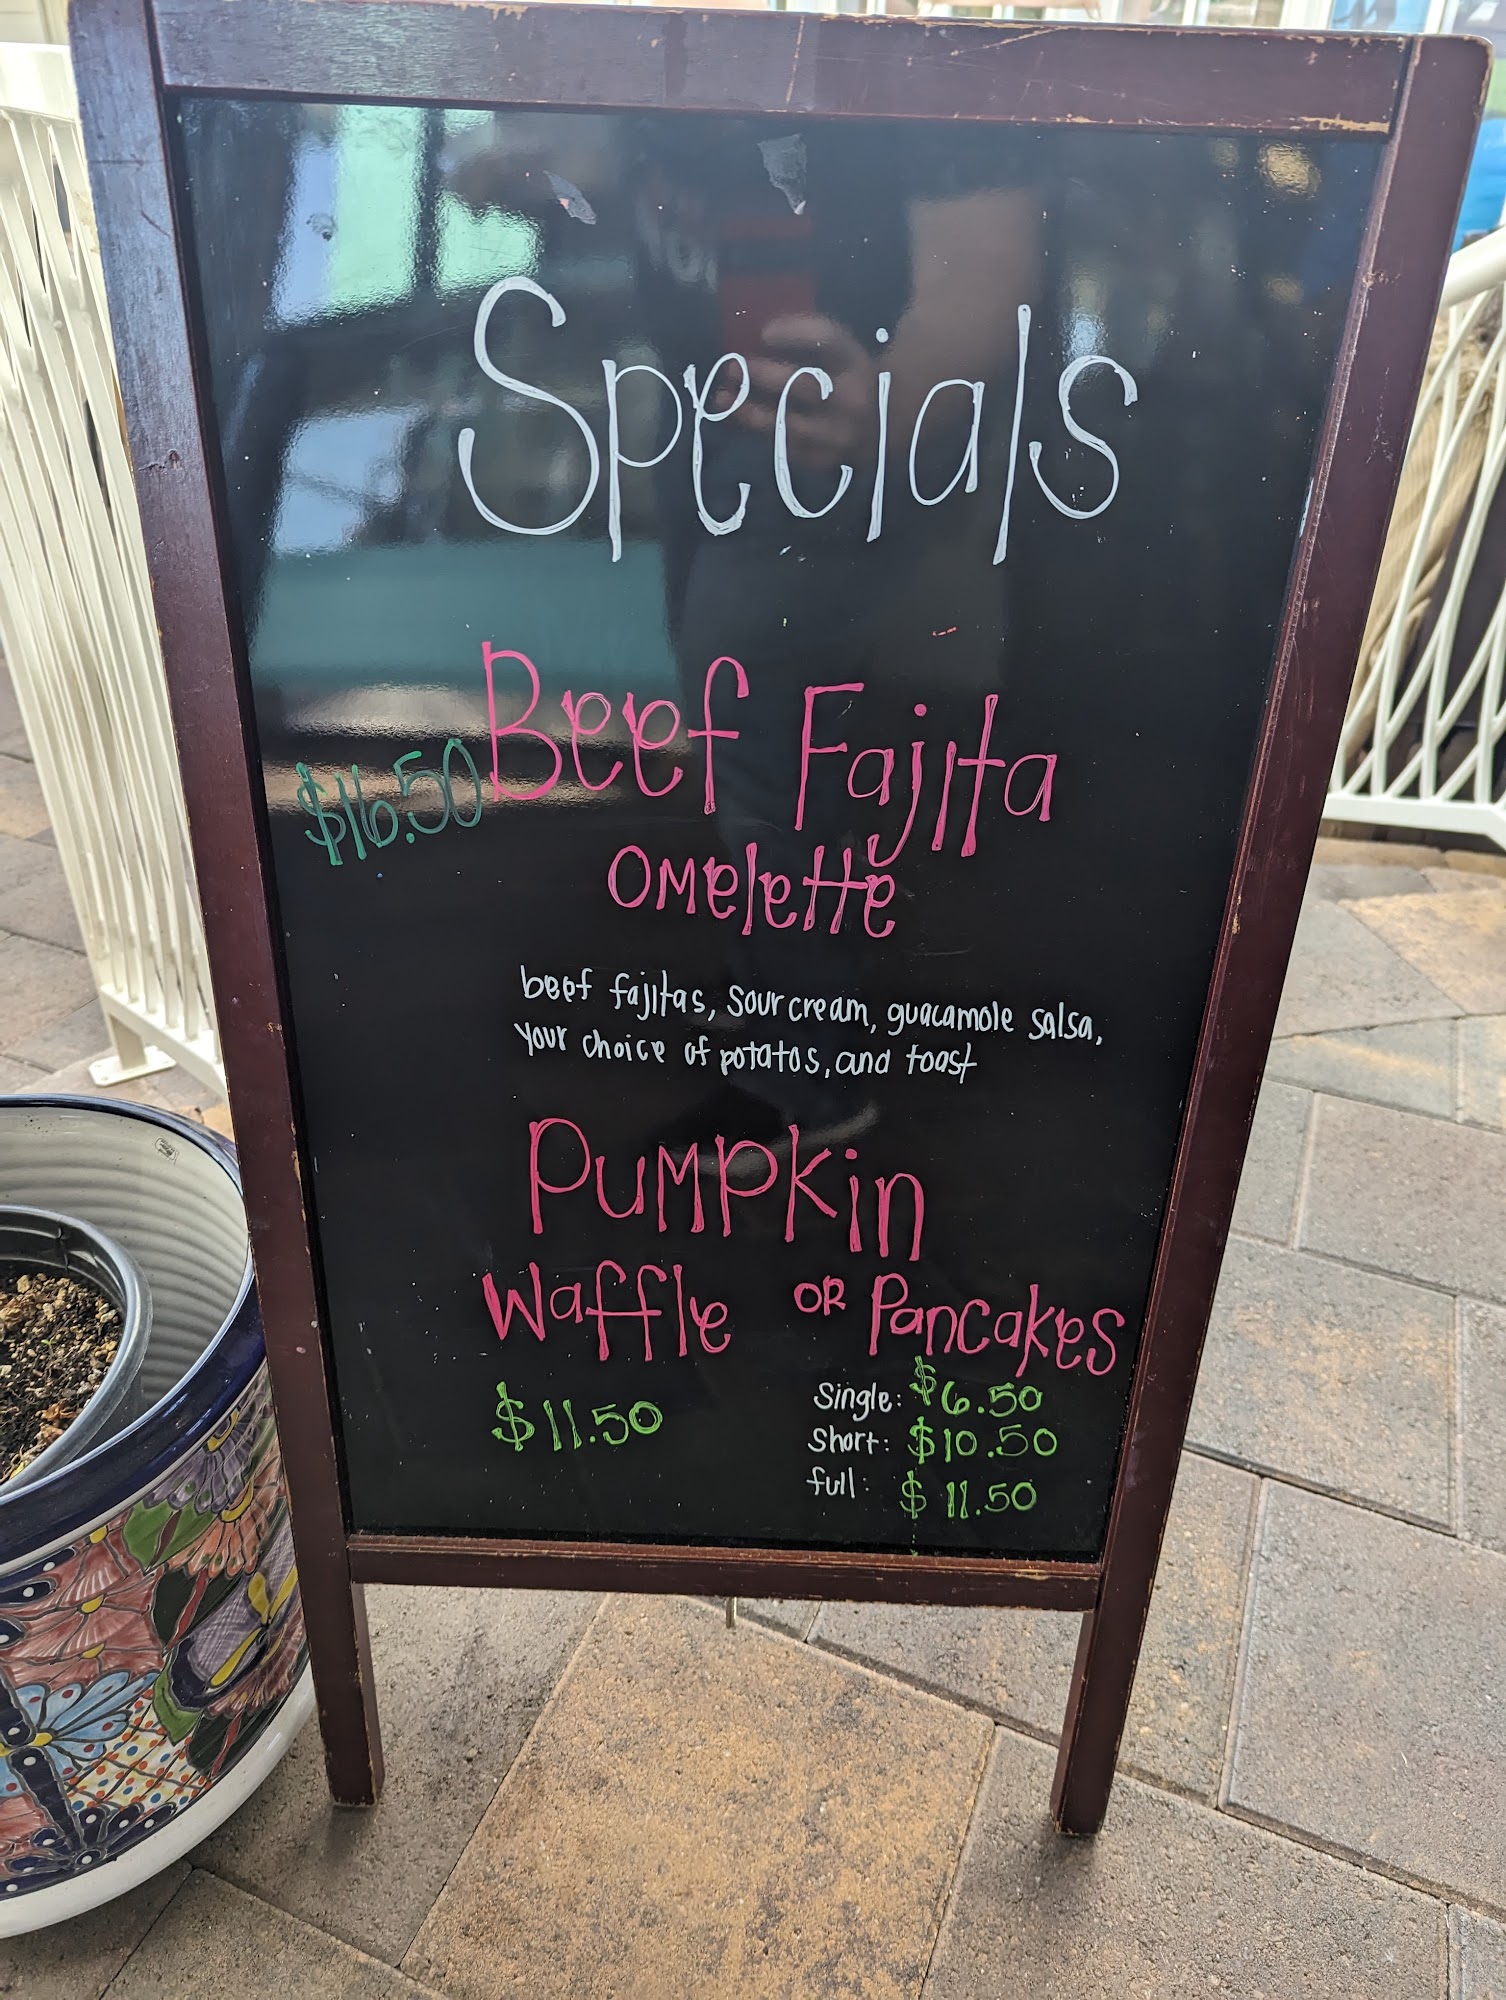 Specials
$16.50 Beef Fajita
Omelette
beef fajitas, sour cream, guacamole salsa,
your choice of potatos, and toast
Pumpkin
Waffle OR Pancakes
$11.50
Single: $6.50
Short: $10.50
full: $11.50